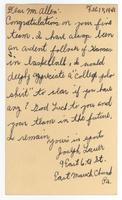 Feb. 17, 1948
Dear Mr. Allen:
Congratulations, on your fine
team. I have always been
an ardent follower of Kansas
in basketball, & would
deeply appreciate a "college photo
shot" to star if you have
any? Good luck to you and
your team in the future,
I remain
Yours in sport
Joseph Lauer
9 East 6th St.
East Mauch Chunk
Pa.